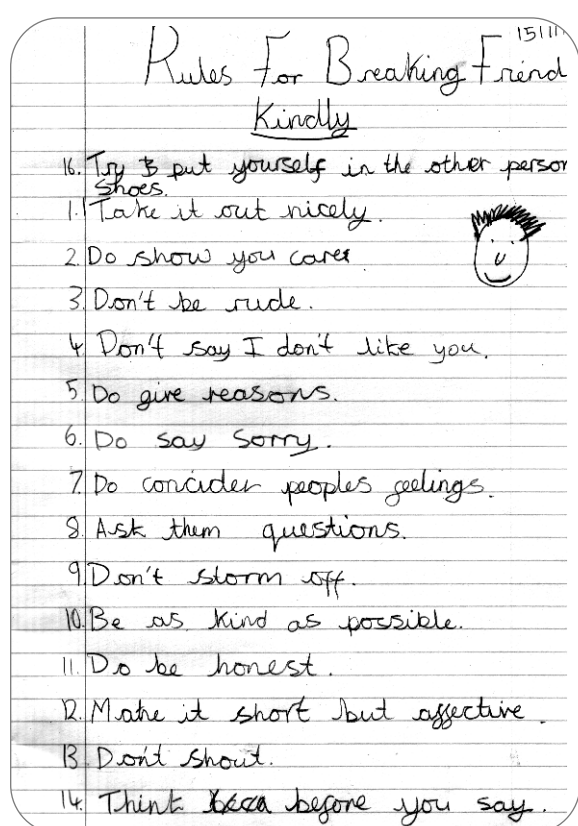 15111
Rules For Breaking Friend
Kindly
16. Try to put yourself in the other person
shoes.
1. Take it out nicely.
2. Do show you cares
3. Don't be rude.
4. Don't say I don't like you.
5. Do give reasons.
6. Do say Sorry.
7. Do concider peoples feelings.
8. Ask them questions.
9. Don't storm off.
10. Be as kind as possible.
11. Do be honest.
12. Make it short but affective.
13. Don't shout.
14. Think before you say.